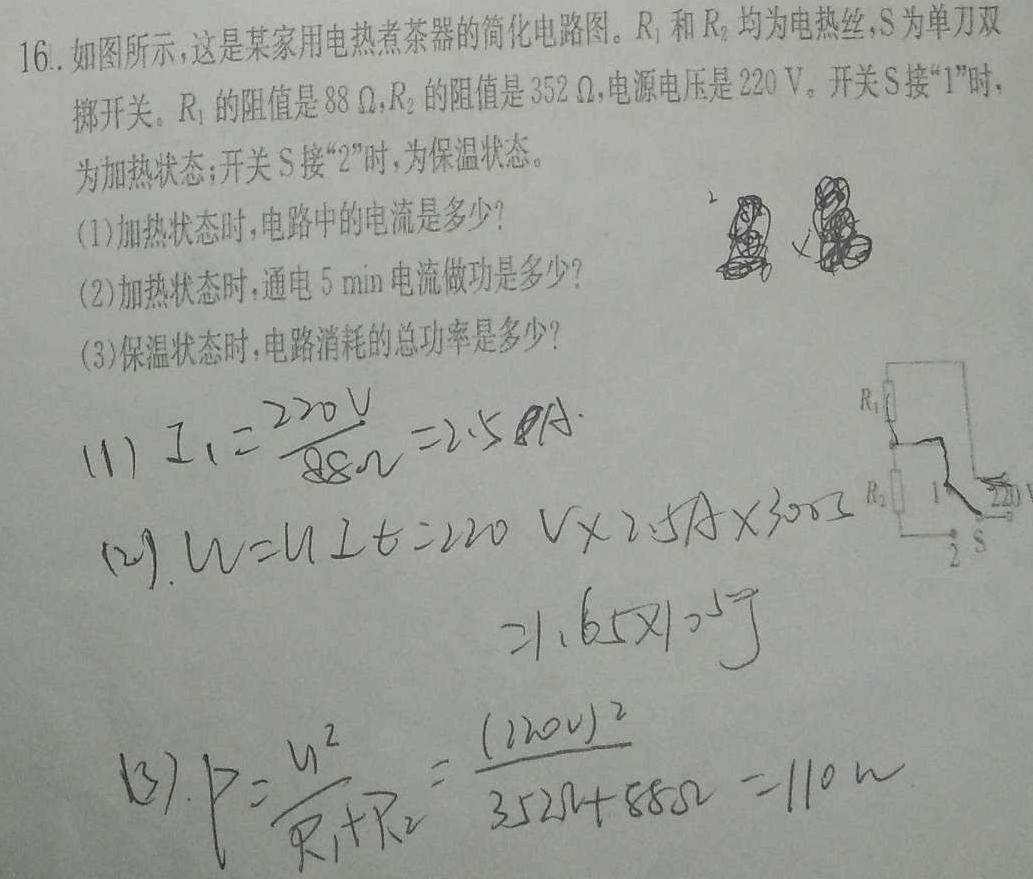 16. 如图所示,这是某家用电热煮茶器的简化电路图。R₁ 和 R₂ 均为电热丝,S 为单刀双
掷开关。R₁ 的阻值是 88 Ω,R₂ 的阻值是 352 Ω,电源电压是 220 V。开关 S 接“1”时,
为加热状态;开关 S 接“2”时,为保温状态。
(1)加热状态时,电路中的电流是多少?
(2)加热状态时,通电 5 min 电流做功是多少?
(3)保温状态时,电路消耗的总功率是多少?
R₁
R₂ 1 220 V
2 S
(1) I₁=220V/88Ω=2.5A.
(2). W=UIt=220V×2.5A×300S
=1.65×10⁵J
(3). P=U²/R₁+R₂=(220V)²/352Ω+88Ω=110W